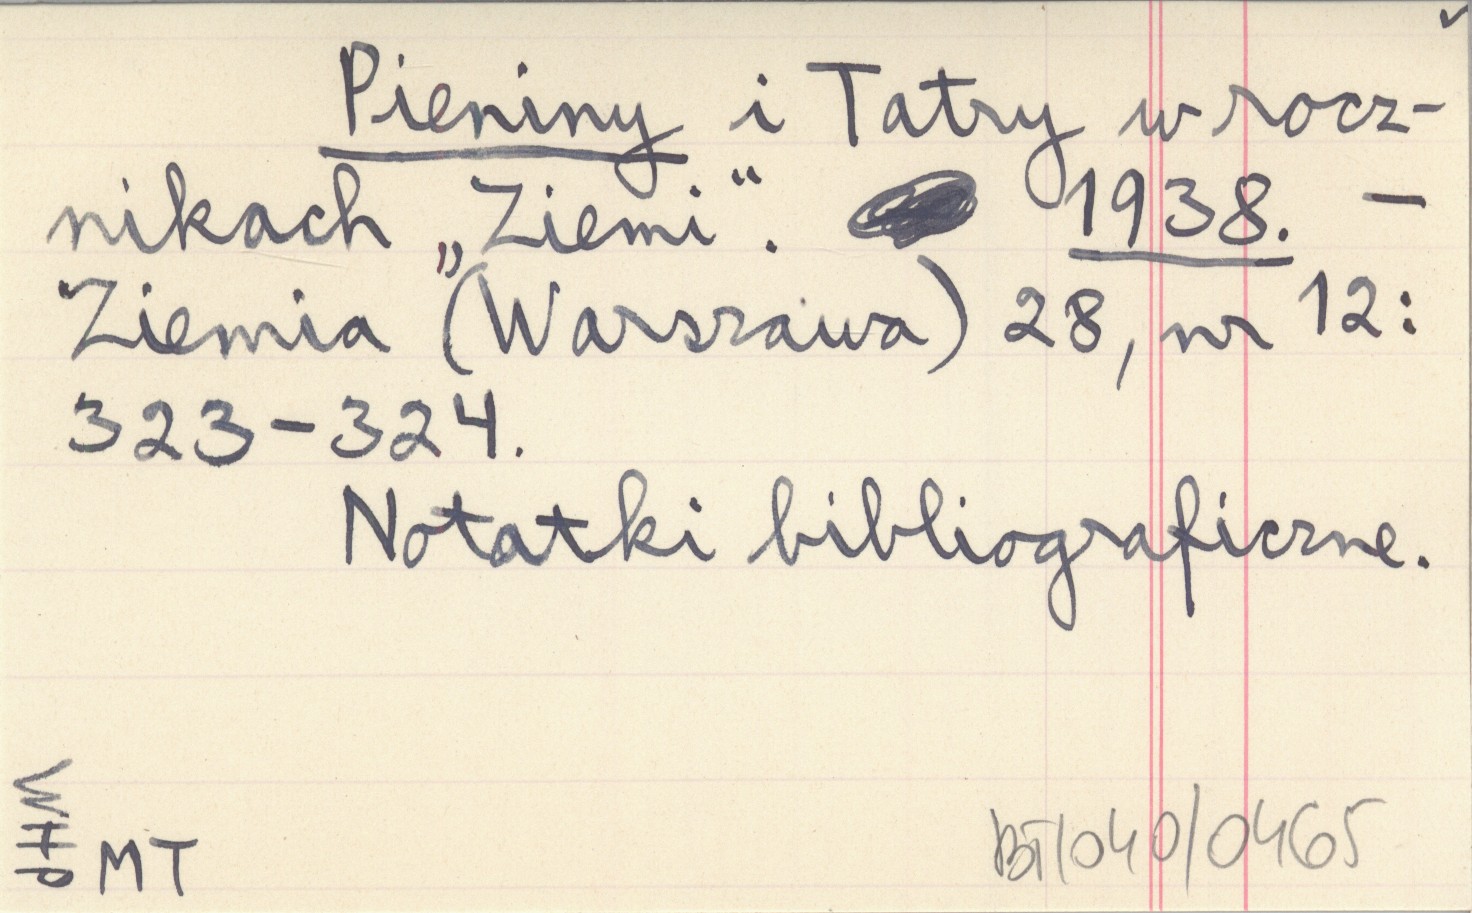 Pieniny i Tatry w rocz-
nikach „Ziemi“. 1938. –
Ziemia (Warszawa) 28, nr 12:
323–324.
Notatki bibliograficzne.
WHP
MT
BT/040/0465